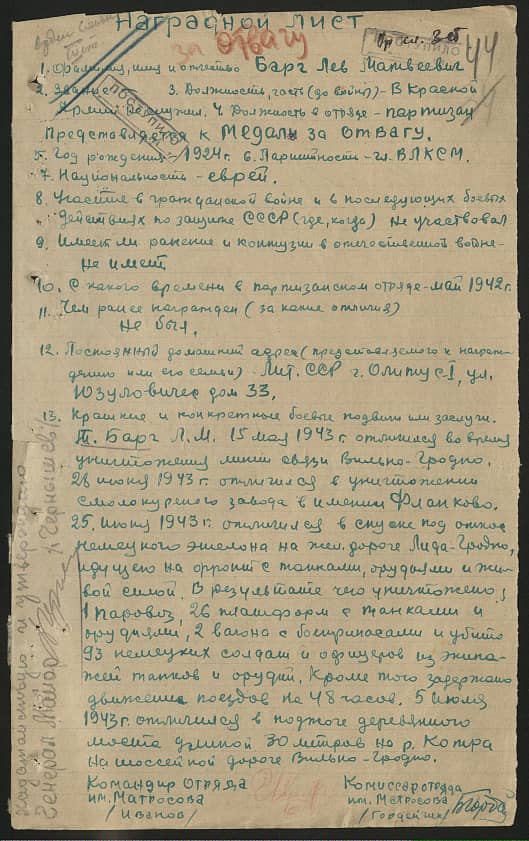 Наградной лист
за отвагу
ПОСТУПИЛО
44
1. Фамилия, имя и отчество Барг Лев Матвеевич
2. Звание 3. Должность, часть (до войны) - В Красной
Армии не служил. 4. Должность в отряде - партизан
ПОСТУПИЛО
Представляется к Медали за отвагу.
5. Год рождения - 1924 г. 6. Партийность - чл. ВЛКСМ.
7. Национальность - еврей.
8. Участие в гражданской войне и в последующих боевых
действиях по защите СССР (где, когда) не участвовал
9. Имеет ли ранение и контузии в отечественной войне -
не имеет
10. С какого времени в партизанском отряде - май 1942 г.
11. Чем ранее награжден (за какие отличия)
не был.
12. Постоянный домашний адрес (представляемого к награж-
дению или его семьи) - Лит. ССР г. Олитус-I, ул.
Юзуловичес дом 33.
13. Краткие и конкретные боевые подвиги или заслуги.
Т. Барг Л.М. 15 мая 1943 г. отличился во время
уничтожения линии связи Вильно-Гродно.
28 июня 1943 г. отличился в уничтожении
смолокуреного завода в имении Фланково.
25. июня 1943 г. отличился в спуске под откос
немецкого эшелона на жел. дороге Лида-Гродно,
идущего на фронт с танками, орудиями и жи-
вой силой. В результате чего уничтожено:
1 паровоз, 26 платформ с танками и
орудиями, 2 вагона с боеприпасами и убито
93 немецких солдат и офицеров из экипа-
жей танков и орудий. Кроме того задержано
движение поездов на 48 часов. 5 июля
1943 г. отличился в поджоге деревянного
моста длиной 30 метров на р. Котра
на шоссейной дороге Вильно-Гродно.
Ходатайствую и утверждаю
Генерал Майор /Чернышев/
Командир отряда
им. Матросова
/Иванов/
Комиссар отряда
им. Матросова
/Гордейчик/